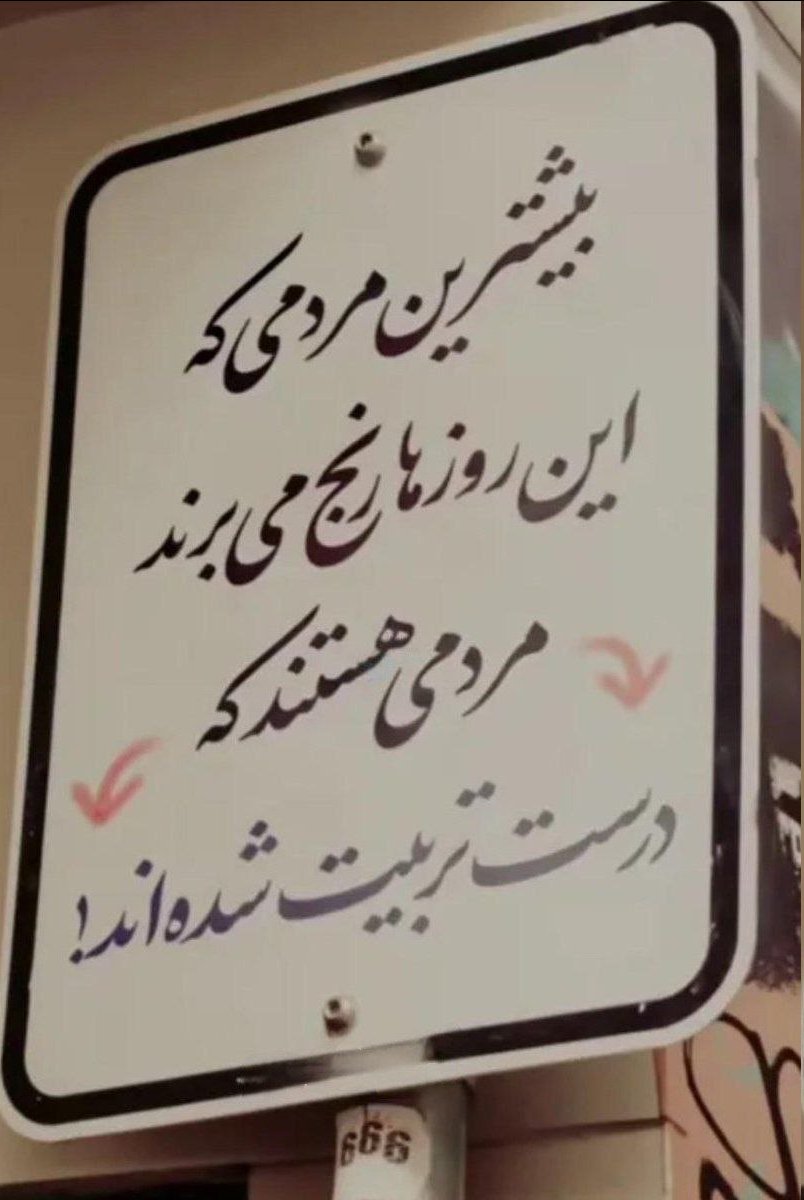 بیشترین مردمی که
این روزها رنج می برند
مردمی هستند که
درست تربیت شده اند!
666